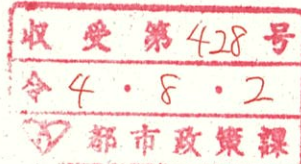 収受第428号
令4・8・2
都市政策課